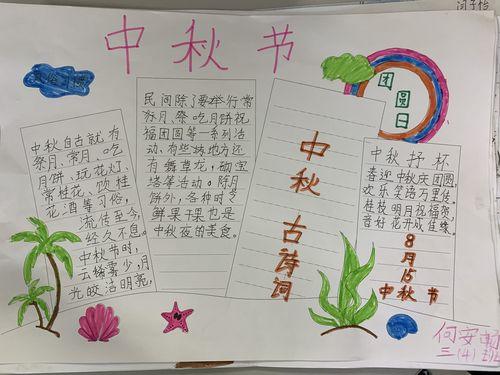 闫子怡
中秋节
团
圆
日
中秋自古就有
祭月、赏月、吃
月饼、玩花灯、
赏桂花、饮桂
花酒等习俗,
流传至今,
经久不息。
中秋节时,
云稀雾少,月
光皎洁明亮,
民间除了要举行赏
月、祭、吃月饼祝
福团圆等一系列活
动、有些地方还
有舞草龙,砌宝
塔等活动。除月
饼外,各种时令
鲜果干果也是
中秋夜的美食。
中秋古诗词
中秋抒怀
喜迎中秋庆团圆,
欢乐笑语万里传。
桂枝明月祝福贺
音好花开成佳缘
8
月
15
中秋节
何安
三(4)